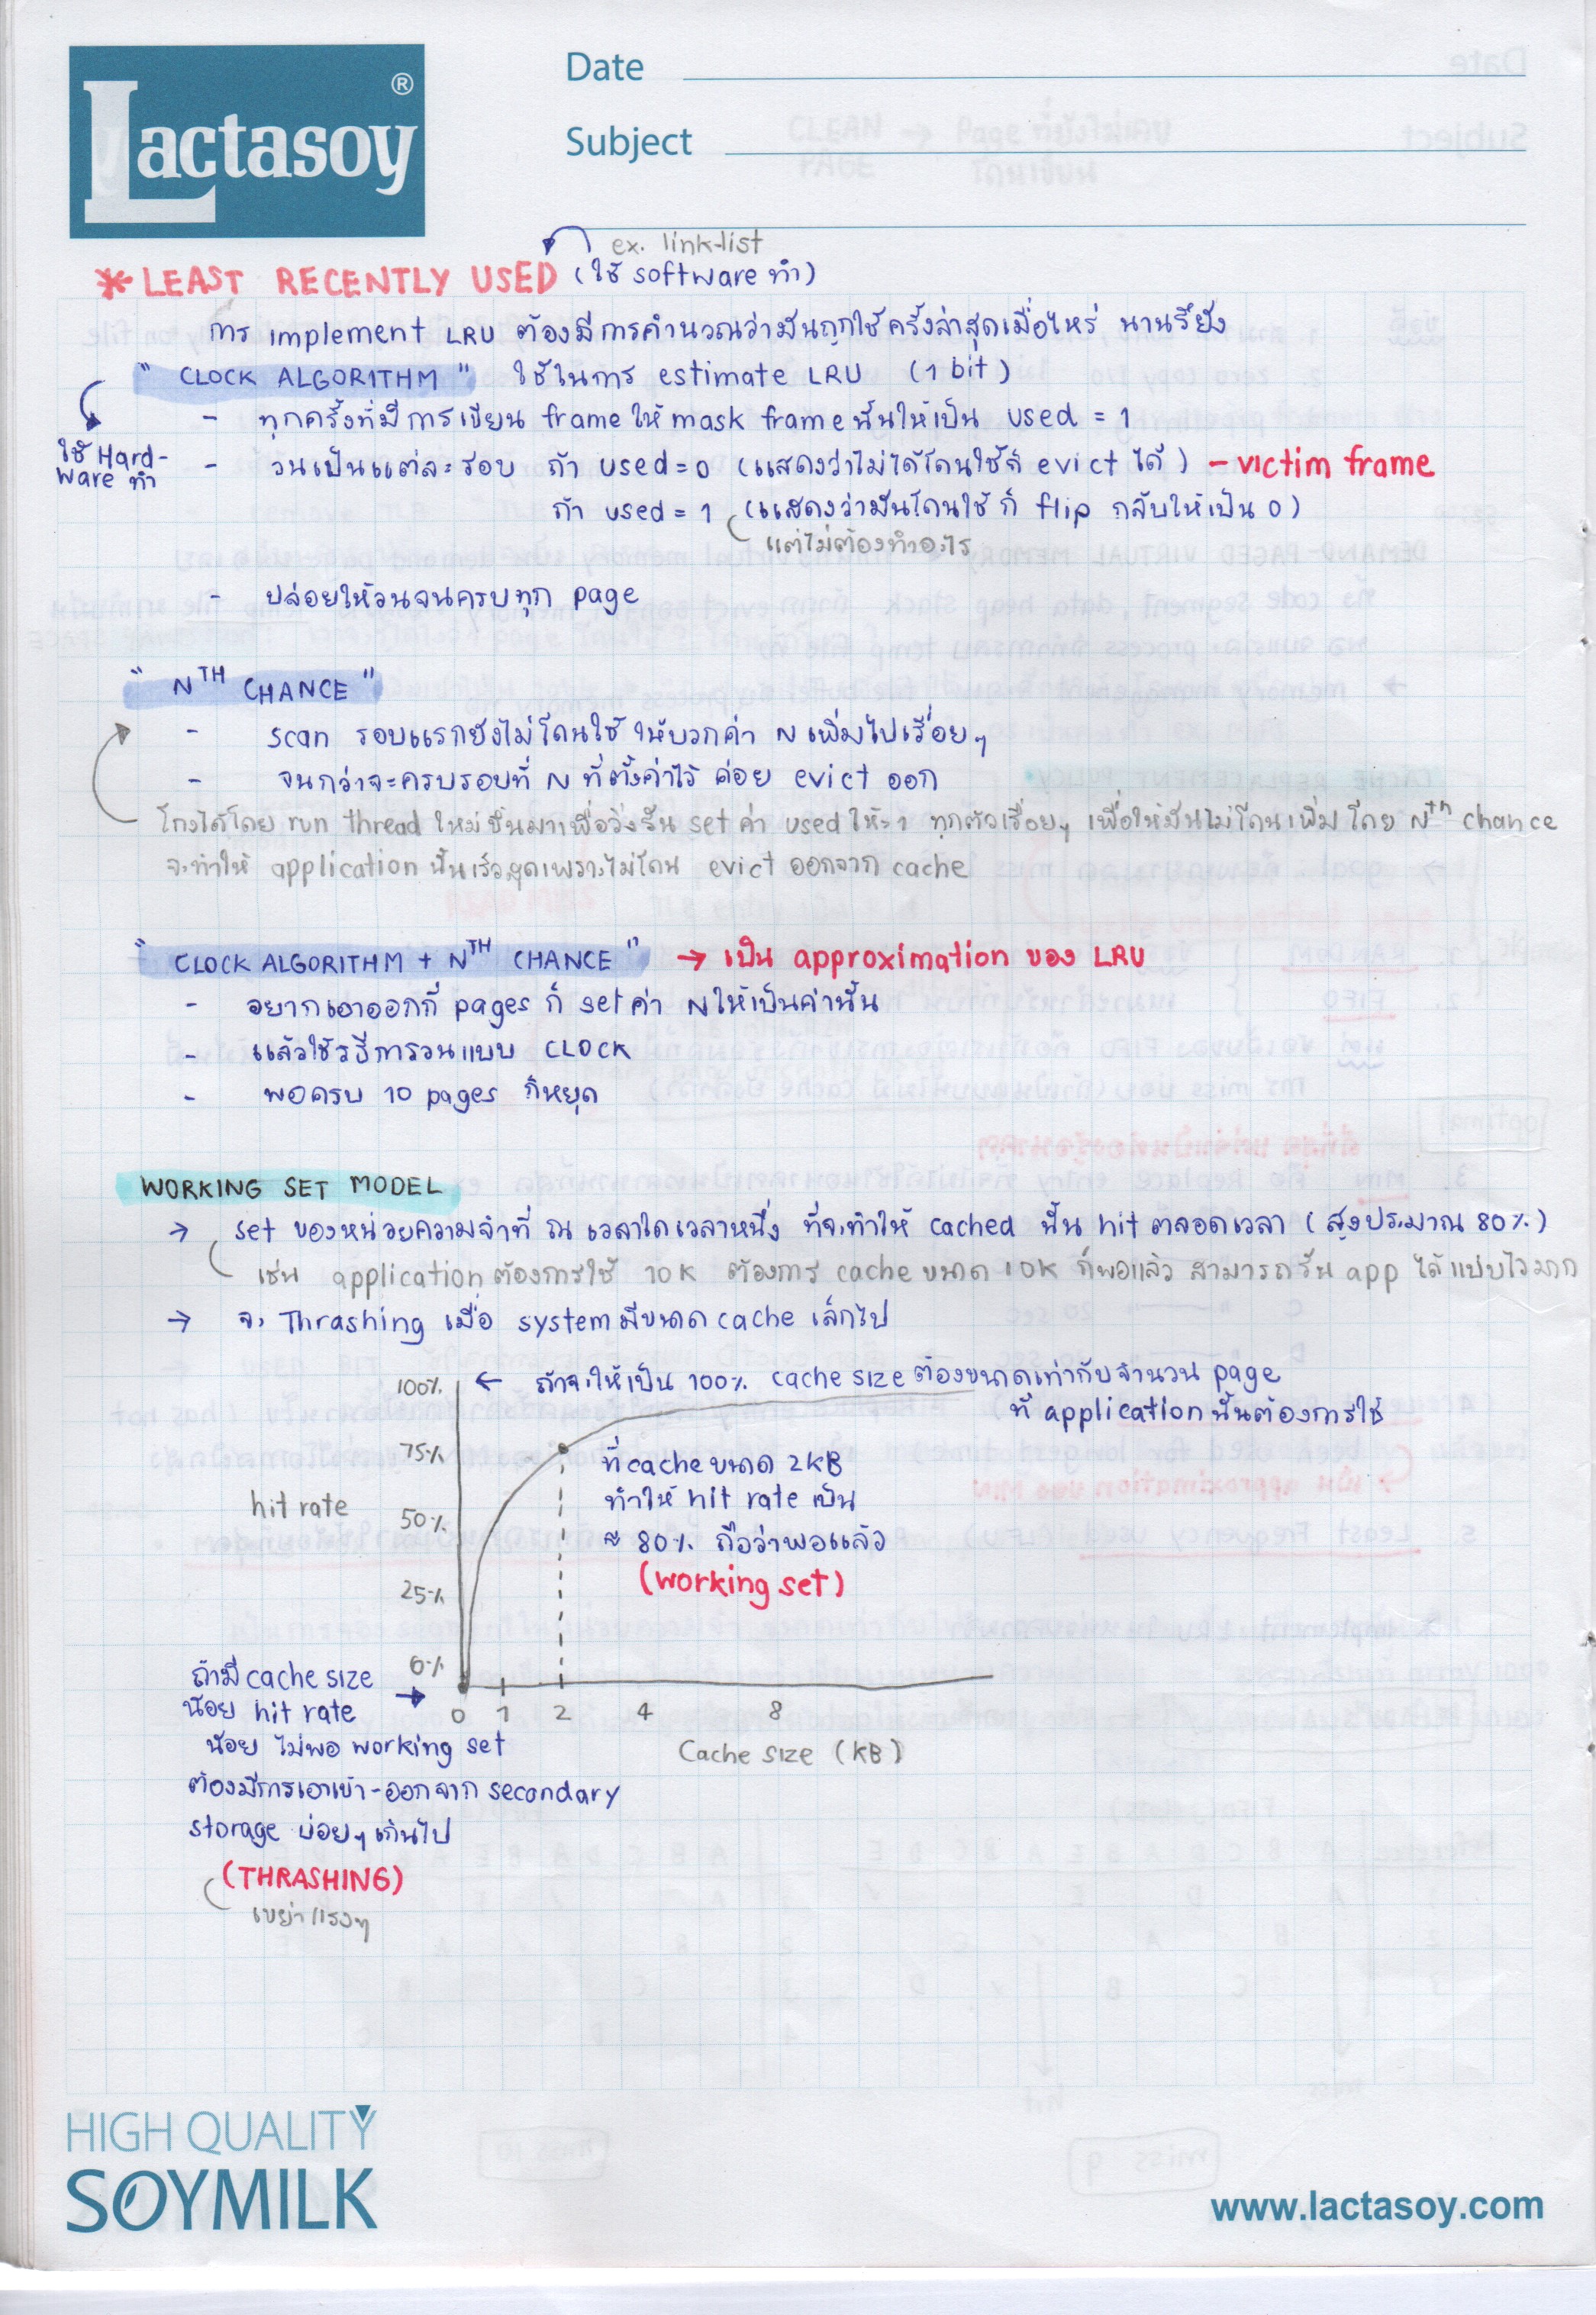 Lactasoy®
Date
Subject
ex. link-list
* LEAST RECENTLY USED (ใช้ software ทำ)
การ implement LRU ต้องมีการคำนวณว่ามันถูกใช้ครั้งล่าสุดเมื่อไหร่ นานรึยัง
" CLOCK ALGORITHM " ใช้ในการ estimate LRU (1 bit)
- ทุกครั้งที่มีการเขียน frame ให้ mask frame นั้นให้เป็น used = 1
ใช้ Hard-
ware ทำ
- วนเป็นแต่ละรอบ ถ้า used = 0 (แสดงว่าไม่ได้โดนใช้ก็ evict ได้) - victim frame
ถ้า used = 1 (แสดงว่ามันโดนใช้ ก็ flip กลับให้เป็น 0)
แต่ไม่ต้องทำอะไร
- ปล่อยให้วนจนครบทุก page
" NTH CHANCE "
- scan รอบแรกยังไม่โดนใช้ ให้บวกค่า N เพิ่มไปเรื่อยๆ
- จนกว่าจะครบรอบที่ N ที่ตั้งค่าไว้ ค่อย evict ออก
โกงได้โดย run thread ใหม่ขึ้นมาเพื่อวิ่งวน set ค่า used ให้=1 ทุกตัวเรื่อยๆ เพื่อให้มันไม่โดนเพิ่ม โดย Nth chance
จะทำให้ application นั้นเร็วสุดเพราะไม่โดน evict ออกจาก cache
" CLOCK ALGORITHM + NTH CHANCE " → เป็น approximation ของ LRU
- อยากเอาออกกี่ pages ก็ set ค่า N ให้เป็นค่านั้น
- แล้วใช้วิธีการวนแบบ CLOCK
- พอครบ 10 pages ก็หยุด
WORKING SET MODEL
→ set ของหน่วยความจำที่ ณ เวลาใดเวลาหนึ่ง ที่จะทำให้ cached นั้น hit ตลอดเวลา (สูงประมาณ 80%)
เช่น application ต้องการใช้ 10K ต้องการ cache ขนาด 10K ก็พอแล้ว สามารถรัน app ได้แบบไวมาก
→ จะ Thrashing เมื่อ system มีขนาด cache เล็กไป
100% ← ถ้าจะให้เป็น 100% cache size ต้องขนาดเท่ากับจำนวน page
ที่ application นั้นต้องการใช้
75%
ที่ cache ขนาด 2KB
hit rate
ทำให้ hit rate เป็น
50%
≈ 80% ถือว่าพอแล้ว
(working set)
25%
0%
ถ้ามี cache size
น้อย hit rate →
0 1 2 4 8
น้อย ไม่พอ working set
Cache size (KB)
ต้องมีการเอาเข้า-ออกจาก secondary
storage บ่อยๆ เกินไป
(THRASHING)
เขย่าแรงๆ
HIGH QUALITY
SOYMILK
www.lactasoy.com